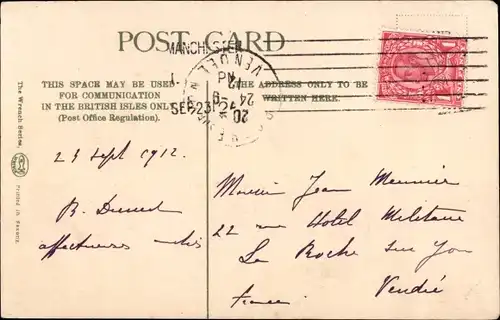 POST CARD
MANCHESTER
THIS SPACE MAY BE USED
FOR COMMUNICATION
IN THE BRITISH ISLES ONLY
(Post Office Regulation).
THE ADDRESS ONLY TO BE
WRITTEN HERE.
SEP 23
VENDEE
20
24
12
The Wrench Series,
Printed in Saxony.
23 Sept 1912.
Monsieur Jean Meunier
22 rue Hotel Militaire
La Roche sur Yon
Vendée
France